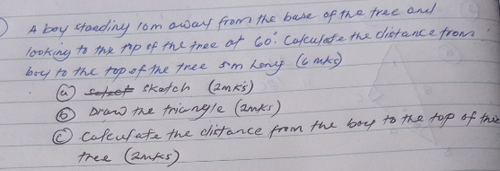 A boy standing 10m away from the base of the tree and
looking to the top of the tree at 60°. Calculate the distance from
boy to the top of the tree 5m long (6 mks)
(a) select sketch (2mks)
(b) Draw the triangle (2mks)
(c) Calculate the distance from the boy to the top of the
tree (2mks)